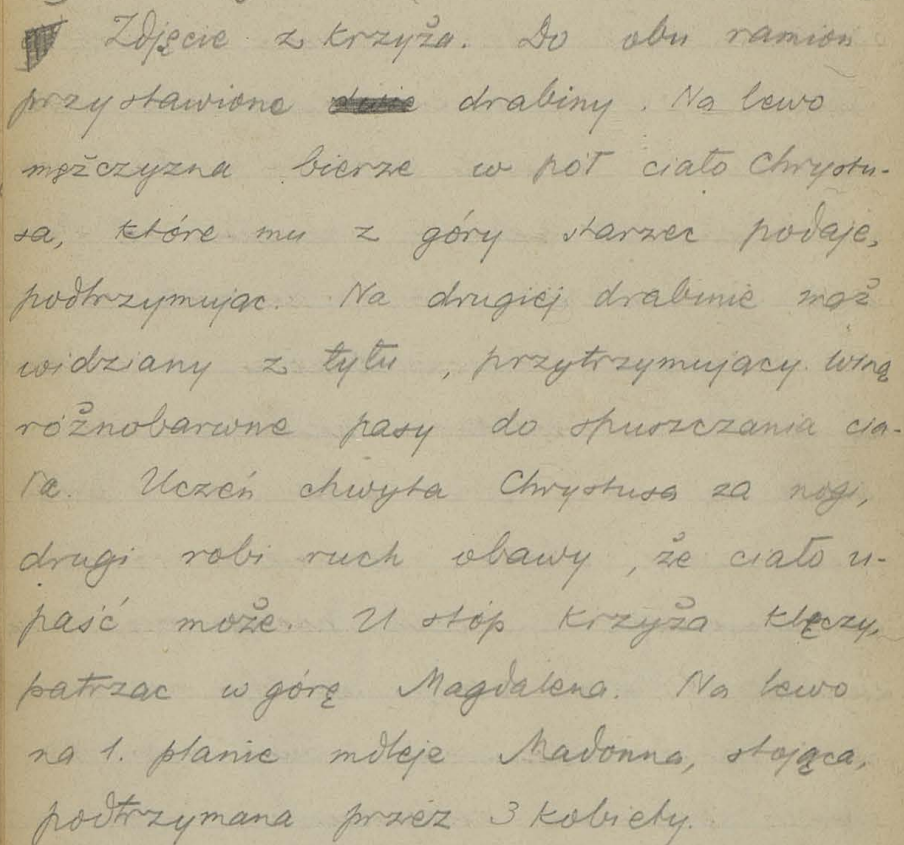 Zdjęcie z krzyża. Do obu ramion
przystawione drabiny. Na lewo
mężczyzna bierze w pół ciało Chrystu-
sa, które mu z góry starzec podaje,
podtrzymując. Na drugiej drabinie mąż
widziany z tyłu, przytrzymujący
różnobarwne pasy do spuszczania cia-
ła. Uczeń chwyta Chrystusa za nogi,
drugi robi ruch obawy, że ciało u-
paść może. U stóp krzyża klęczy,
patrząc w górę Magdalena. Na lewo
na 1. planie mdleje Madonna, stojąca,
podtrzymana przez 3 kobiety.